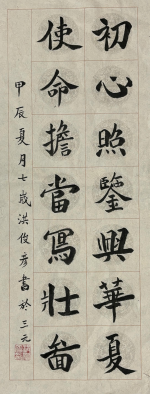 初心照鑒興華夏
使命擔當寫壯啚
甲辰夏月七歲洪俊彥書於三元